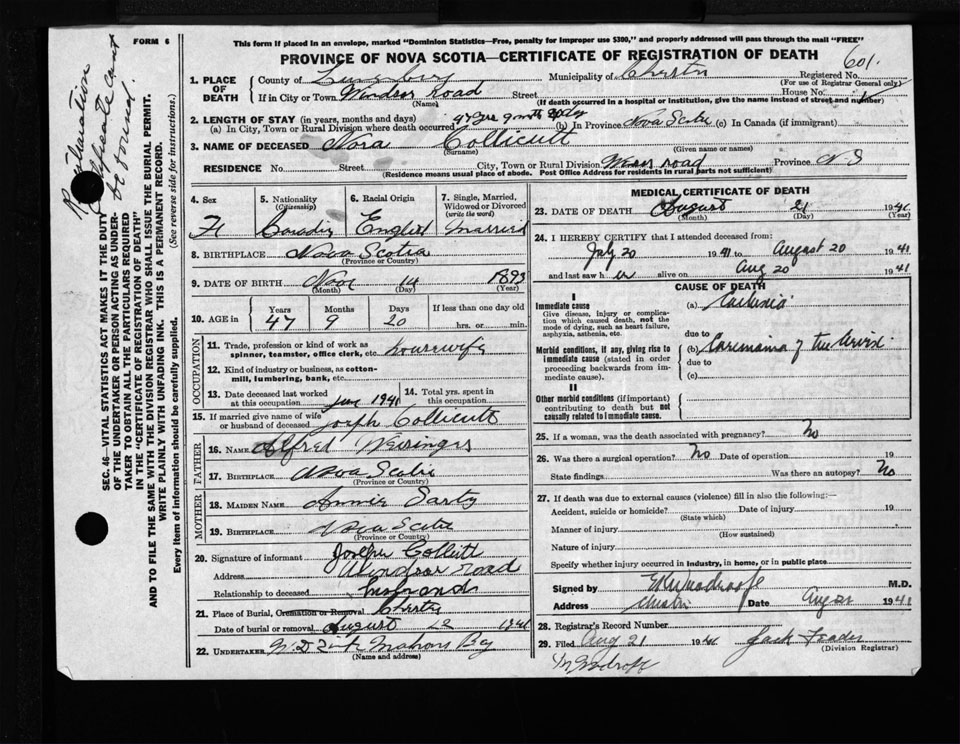 FORM 6
This form if placed in an envelope, marked "Dominion Statistics—Free, penalty for improper use $300," and properly addressed will pass through the mail "FREE"
PROVINCE OF NOVA SCOTIA—CERTIFICATE OF REGISTRATION OF DEATH
601.
1. PLACE OF DEATH County of Lunenburg Municipality of Chester Registered No.
(For use of Registrar General only)
If in City or Town Windsor Road Street House No.
(Name) (If death occurred in a hospital or institution, give the name instead of street and number)
2. LENGTH OF STAY (in years, months and days)
(a) In City, Town or Rural Division where death occurred 47 yrs 9 mth (b) In Province Nova Scotia (c) In Canada (if immigrant)
3. NAME OF DECEASED Nora Collicutt
(Surname) (Given name or names)
RESIDENCE No. Street City, Town or Rural Division Road Province N S
(Residence means usual place of abode. Post Office Address for residents in rural parts not sufficient)
4. Sex
F
5. Nationality (Citizenship)
Canadian
6. Racial Origin
English
7. Single, Married, Widowed or Divorced (write the word)
Married
8. BIRTHPLACE Nova Scotia
(Province or Country)
9. DATE OF BIRTH Nov 14 1893
(Month) (Day) (Year)
10. AGE in Years Months Days If less than one day old
47 9 20 hrs. or min.
OCCUPATION
11. Trade, profession or kind of work as spinner, teamster, office clerk, etc. housewife
12. Kind of industry or business, as cotton-mill, lumbering, bank, etc.
13. Date deceased last worked at this occupation June 1941
14. Total yrs. spent in this occupation
15. If married give name of wife or husband of deceased Joseph Collicutt
FATHER
16. NAME Alfred
17. BIRTHPLACE Nova Scotia
(Province or Country)
MOTHER
18. MAIDEN NAME Annie Sarty
19. BIRTHPLACE Nova Scotia
(Province or Country)
20. Signature of informant Joseph
Address Windsor Road
Relationship to deceased husband
21. Place of Burial, Cremation or Removal Chester
Date of burial or removal August 22 1941
22. UNDERTAKER Mahone Bay
(Name and address)
MEDICAL CERTIFICATE OF DEATH
23. DATE OF DEATH August 21 1941
(Month) (Day) (Year)
24. I HEREBY CERTIFY that I attended deceased from:
July 20 1941 to August 20 1941
and last saw h er alive on Aug 20 1941
CAUSE OF DEATH
I
Immediate cause
Give disease, injury or complication which caused death, not the mode of dying, such as heart failure, asphyxia, asthenia, etc.
(a)
due to
Morbid conditions, if any, giving rise to immediate cause (stated in order proceeding backwards from immediate cause).
(b) of the
due to
(c)
II
Other morbid conditions (if important) contributing to death but not causally related to immediate cause.
25. If a woman, was the death associated with pregnancy? No
26. Was there a surgical operation? No Date of operation 19
State findings Was there an autopsy? No
27. If death was due to external causes (violence) fill in also the following:—
Accident, suicide or homicide? Date of injury 19
(State which)
Manner of injury
(How sustained)
Nature of injury
Specify whether injury occurred in industry, in home, or in public place
Signed by M.D.
Address Chester Date Aug 21 1941
28. Registrar's Record Number
29. Filed Aug 21 1941 Jack
(Division Registrar)
SEC. 46—VITAL STATISTICS ACT MAKES IT THE DUTY OF THE UNDERTAKER OR PERSON ACTING AS UNDERTAKER TO OBTAIN ALL THE PARTICULARS REQUIRED IN THE "CERTIFICATE OF REGISTRATION OF DEATH" AND TO FILE THE SAME WITH THE DIVISION REGISTRAR WHO SHALL ISSUE THE BURIAL PERMIT.
WRITE PLAINLY WITH UNFADING INK. THIS IS A PERMANENT RECORD.
Every item of information should be carefully supplied. (See reverse side for instructions.)